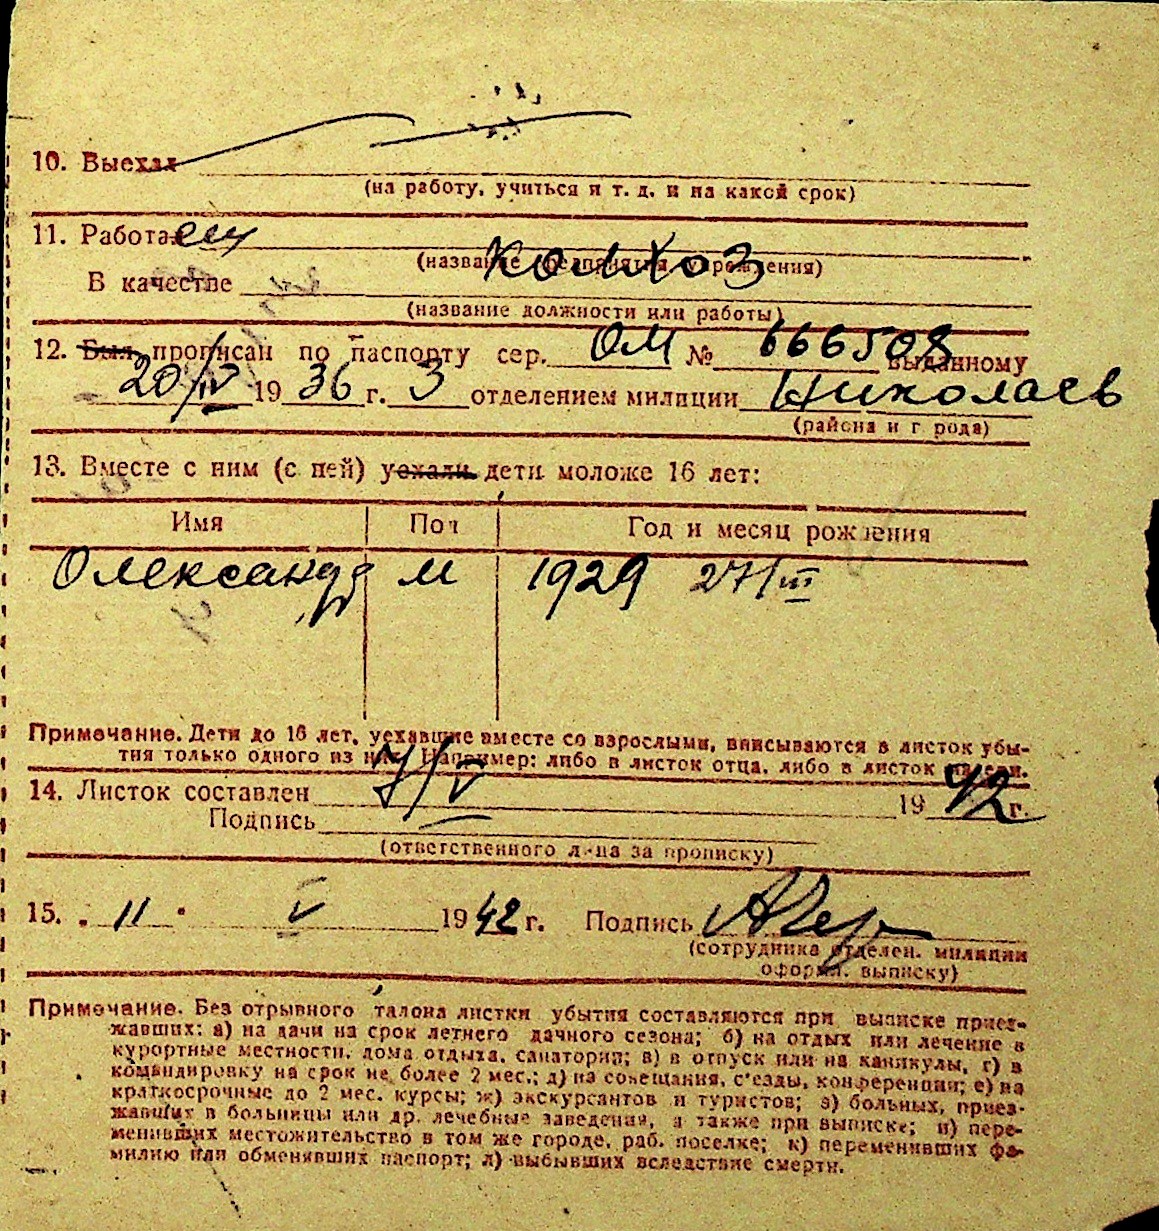 10. Выехал
(на работу, учиться и т. д. и на какой срок)
11. Работа
(название предприятия, учреждения)
колхоз
В качестве
(название должности или работы)
12. Был прописан по паспорту сер. ОМ № 666508 выданному
20/IV 1936 г. 3 отделением милиции Николаев
(района и города)
13. Вместе с ним (с ней) уехали дети моложе 16 лет:
Имя Пол Год и месяц рождения
Олександр м 1929 27/III
Примечание. Дети до 16 лет, уехавшие вместе со взрослыми, вписываются в листок убы-
тия только одного из них. Например: либо в листок отца, либо в листок матери.
14. Листок составлен 7/V 1942 г.
Подпись
(ответственного лица за прописку)
15. 11 V 1942 г. Подпись
(сотрудника отделен. милиции
оформ. выписку)
Примечание. Без отрывного талона листки убытия составляются при выписке приез-
жавших: а) на дачи на срок летнего дачного сезона; б) на отдых или лечение в
курортные местности, дома отдыха, санатории; в) в отпуск или на каникулы, г) в
командировку на срок не более 2 мес.; д) на совещания, с'езды, конференции; е) на
краткосрочные до 2 мес. курсы; ж) экскурсантов и туристов; з) больных, приез-
жавших в больницы или др. лечебные заведения, а также при выписке; и) пере-
менивших местожительство в том же городе, раб. поселке; к) переменивших фа-
милию или обменявших паспорт; л) выбывших вследствие смерти.